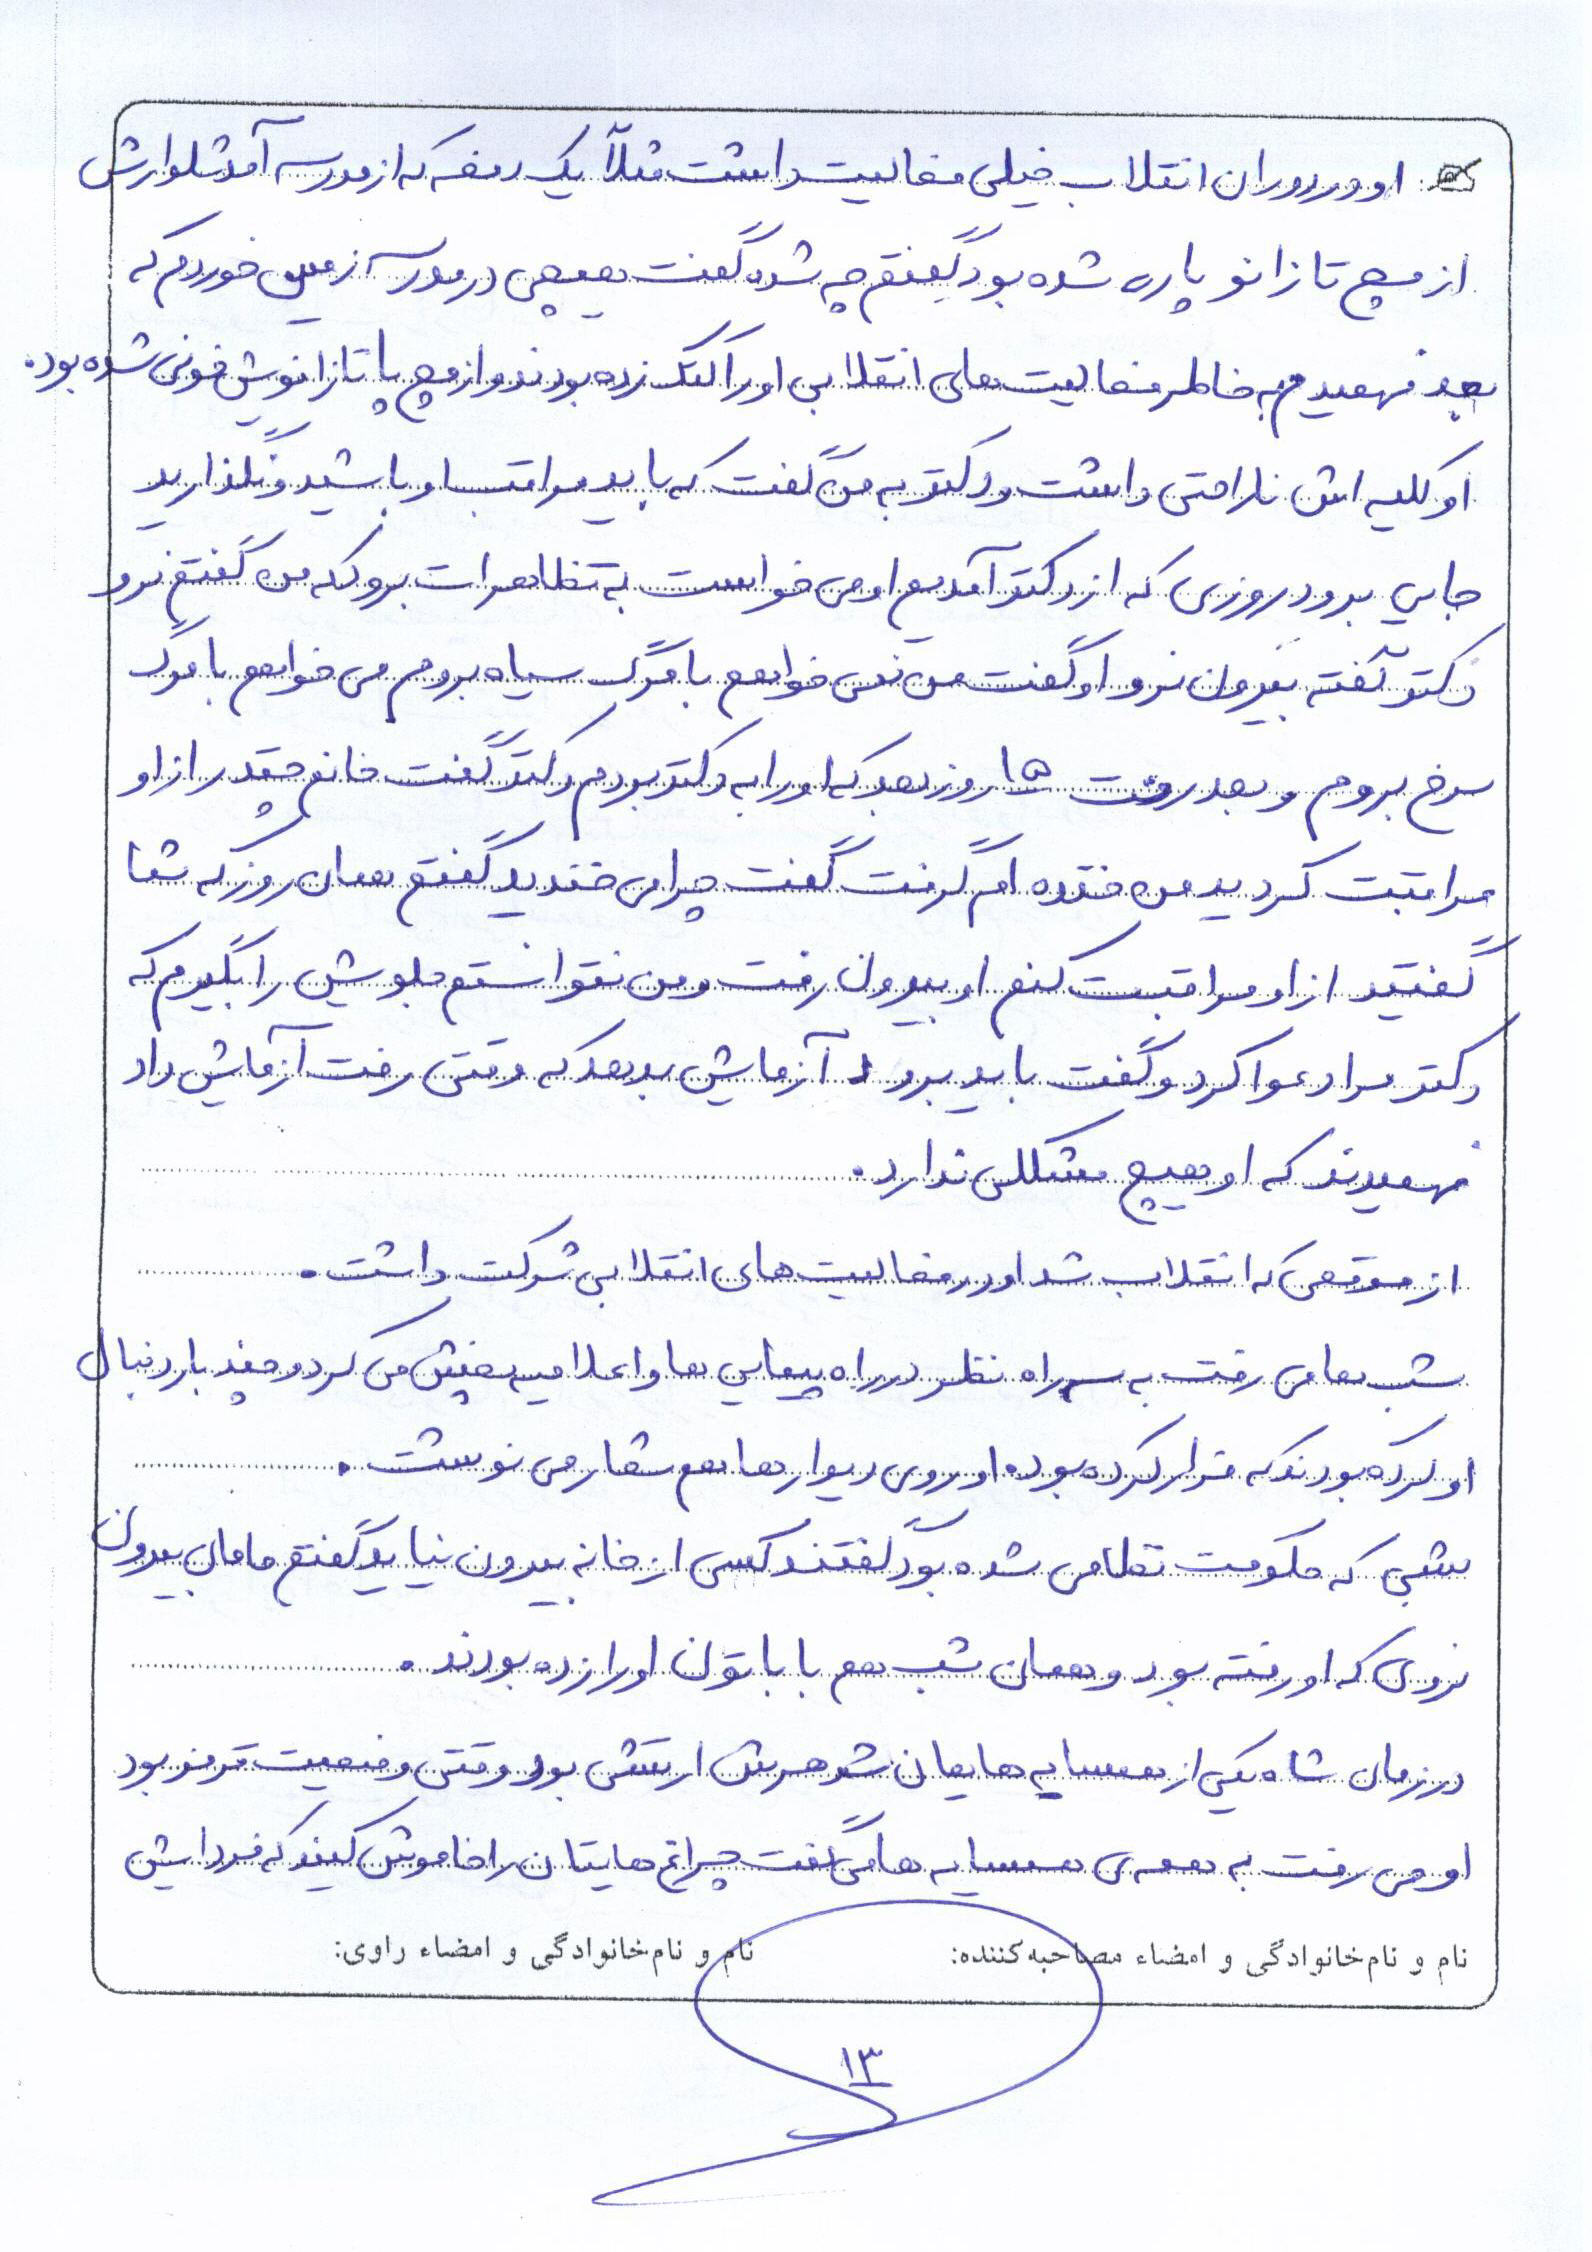 او در دوران انقلاب خیلی فعالیت داشت مثلاً یک دفعه که از مدرسه آمد شلوارش
از مچ تا زانو پاره شده بود گفتم چه شده گفت هیچی در مدرسه زمین خوردم که
بعد فهمیدم به خاطر فعالیت های انقلابی او را کتک زده بودند و از مچ پا تا زانویش خونی شده بود.
او کلیه اش ناراحتی داشت و دکتر به من گفت که باید مراقب او باشید و نگذارید
جایی برود روزی که از دکتر آمدیم او می خواست به تظاهرات برود که من گفتم نرو
دکتر گفته بیرون نرو او گفت من نمی خواهم با مرگ سیاه بروم می خواهم با مرگ
سرخ بروم و بعد رفت ۱۵ روز بعد که او را به دکتر بردم دکتر گفت خانم چقدر از او
مراقبت کردید من خنده ام گرفت گفت چرا می خندید گفتم همان روز که شما
گفتید از او مراقبت کنم او بیرون رفت و من نتوانستم جلویش را بگیرم که
دکتر مرا دعوا کرد و گفت باید برود آزمایش بدهد که وقتی رفت آزمایش داد
فهمیدند که او هیچ مشکلی ندارد.
از موقعی که انقلاب شد او در فعالیت های انقلابی شرکت داشت.
شب ها می رفت به سه راه نظر در راه پیمایی ها و اعلامیه پخش می کرد و چند بار دنبال
او کرده بودند که فرار کرده بود. او روی دیوارها هم شعار می نوشت.
شبی که حکومت نظامی شده بود گفتند کسی از خانه بیرون نیاید گفتم مامان بیرون
نروی که او رفته بود و همان شب هم با باتون او را زده بودند.
در زمان شاه یکی از همسایه هایمان شوهرش ارتشی بود وقتی وضعیت قرمز بود
او می رفت به همه ی همسایه ها می گفت چراغ هایتان را خاموش کنید که فردایش
نام و نام‌خانوادگی و امضاء مصاحبه‌کننده: نام و نام‌خانوادگی و امضاء راوی:
۱۳